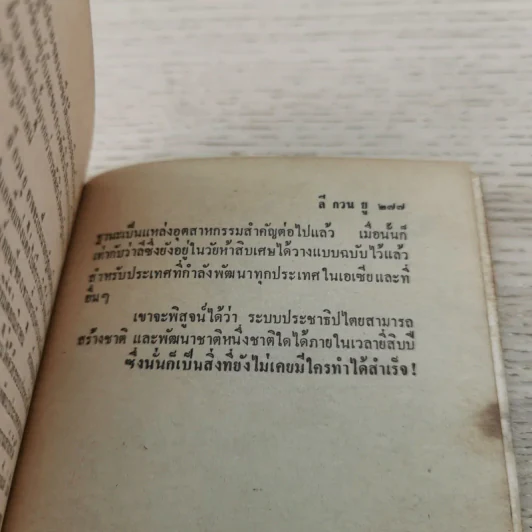 ลี กวน ยู ๒๗๗
ฐานะเป็นแหล่งอุตสาหกรรมสำคัญต่อไปแล้ว เมื่อนั้นก็
เท่ากับว่าลีซึ่งยังอยู่ในวัยห้าสิบเศษได้วางแบบฉบับไว้แล้ว
สำหรับประเทศที่กำลังพัฒนาทุกประเทศในเอเซียและที่
อื่นๆ
เขาจะพิสูจน์ได้ว่า ระบบประชาธิปไตยสามารถ
สร้างชาติ และพัฒนาชาติหนึ่งชาติใดได้ภายในเวลายี่สิบปี
ซึ่งนั่นก็เป็นสิ่งที่ยังไม่เคยมีใครทำได้สำเร็จ!